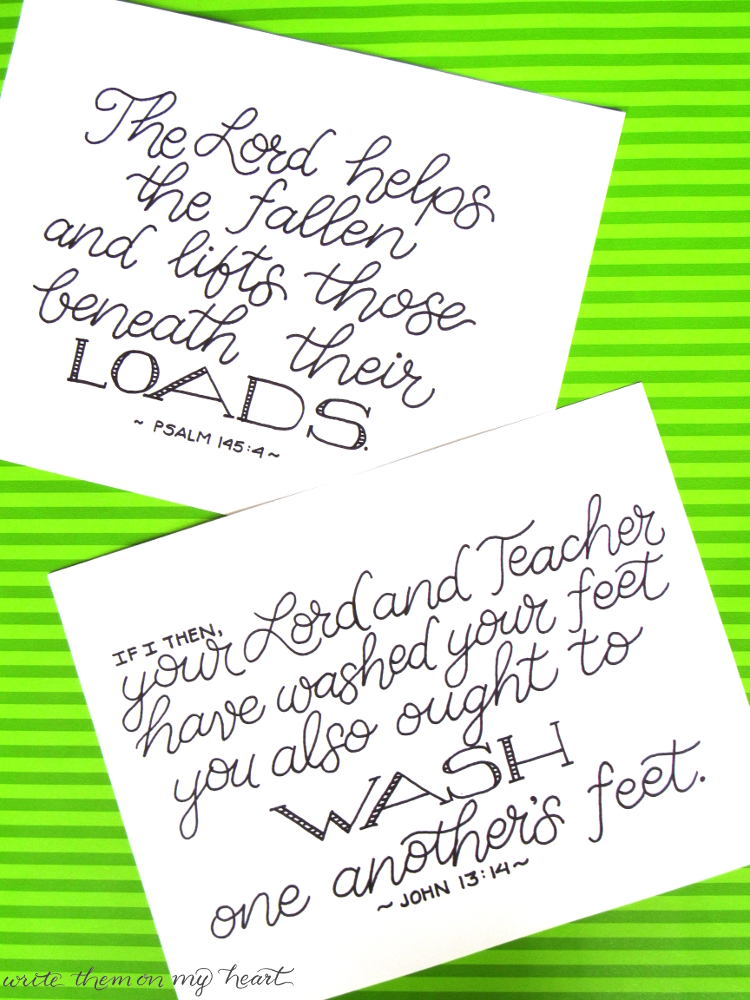 The Lord helps
the fallen
and lifts those
beneath their
LOADS.
~ PSALM 145:4 ~
IF I THEN,
your Lord and Teacher
have washed your feet
you also ought to
WASH
one another's feet.
~ JOHN 13:14 ~
write them on my heart